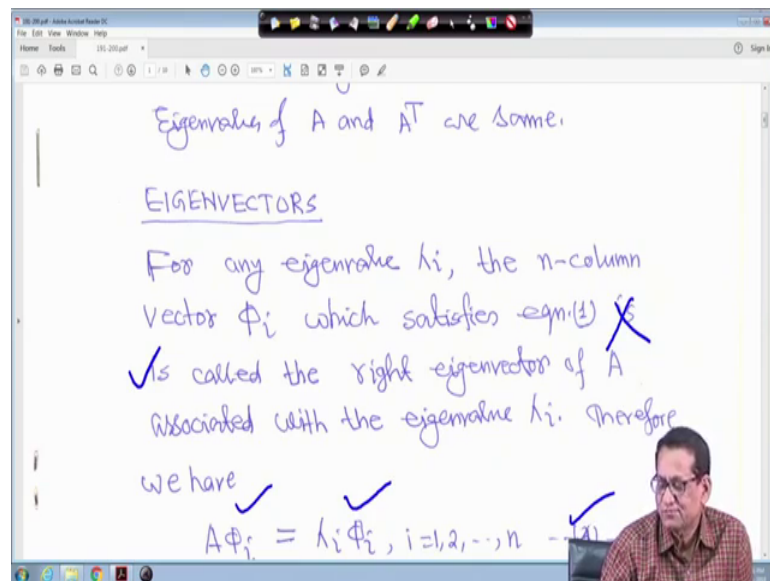 191-200.pdf - Adobe Acrobat Reader DC
File Edit View Window Help
Home Tools 191-200.pdf × Sign In
Eigenvalues of A and Aᵀ are same.
EIGENVECTORS
For any eigenvalue λi, the n-column
vector Φi which satisfies eqn.(1) is
is called the right eigenvector of A
associated with the eigenvalue λi. Therefore
we have
AΦi = λiΦi, i=1,2,--,n